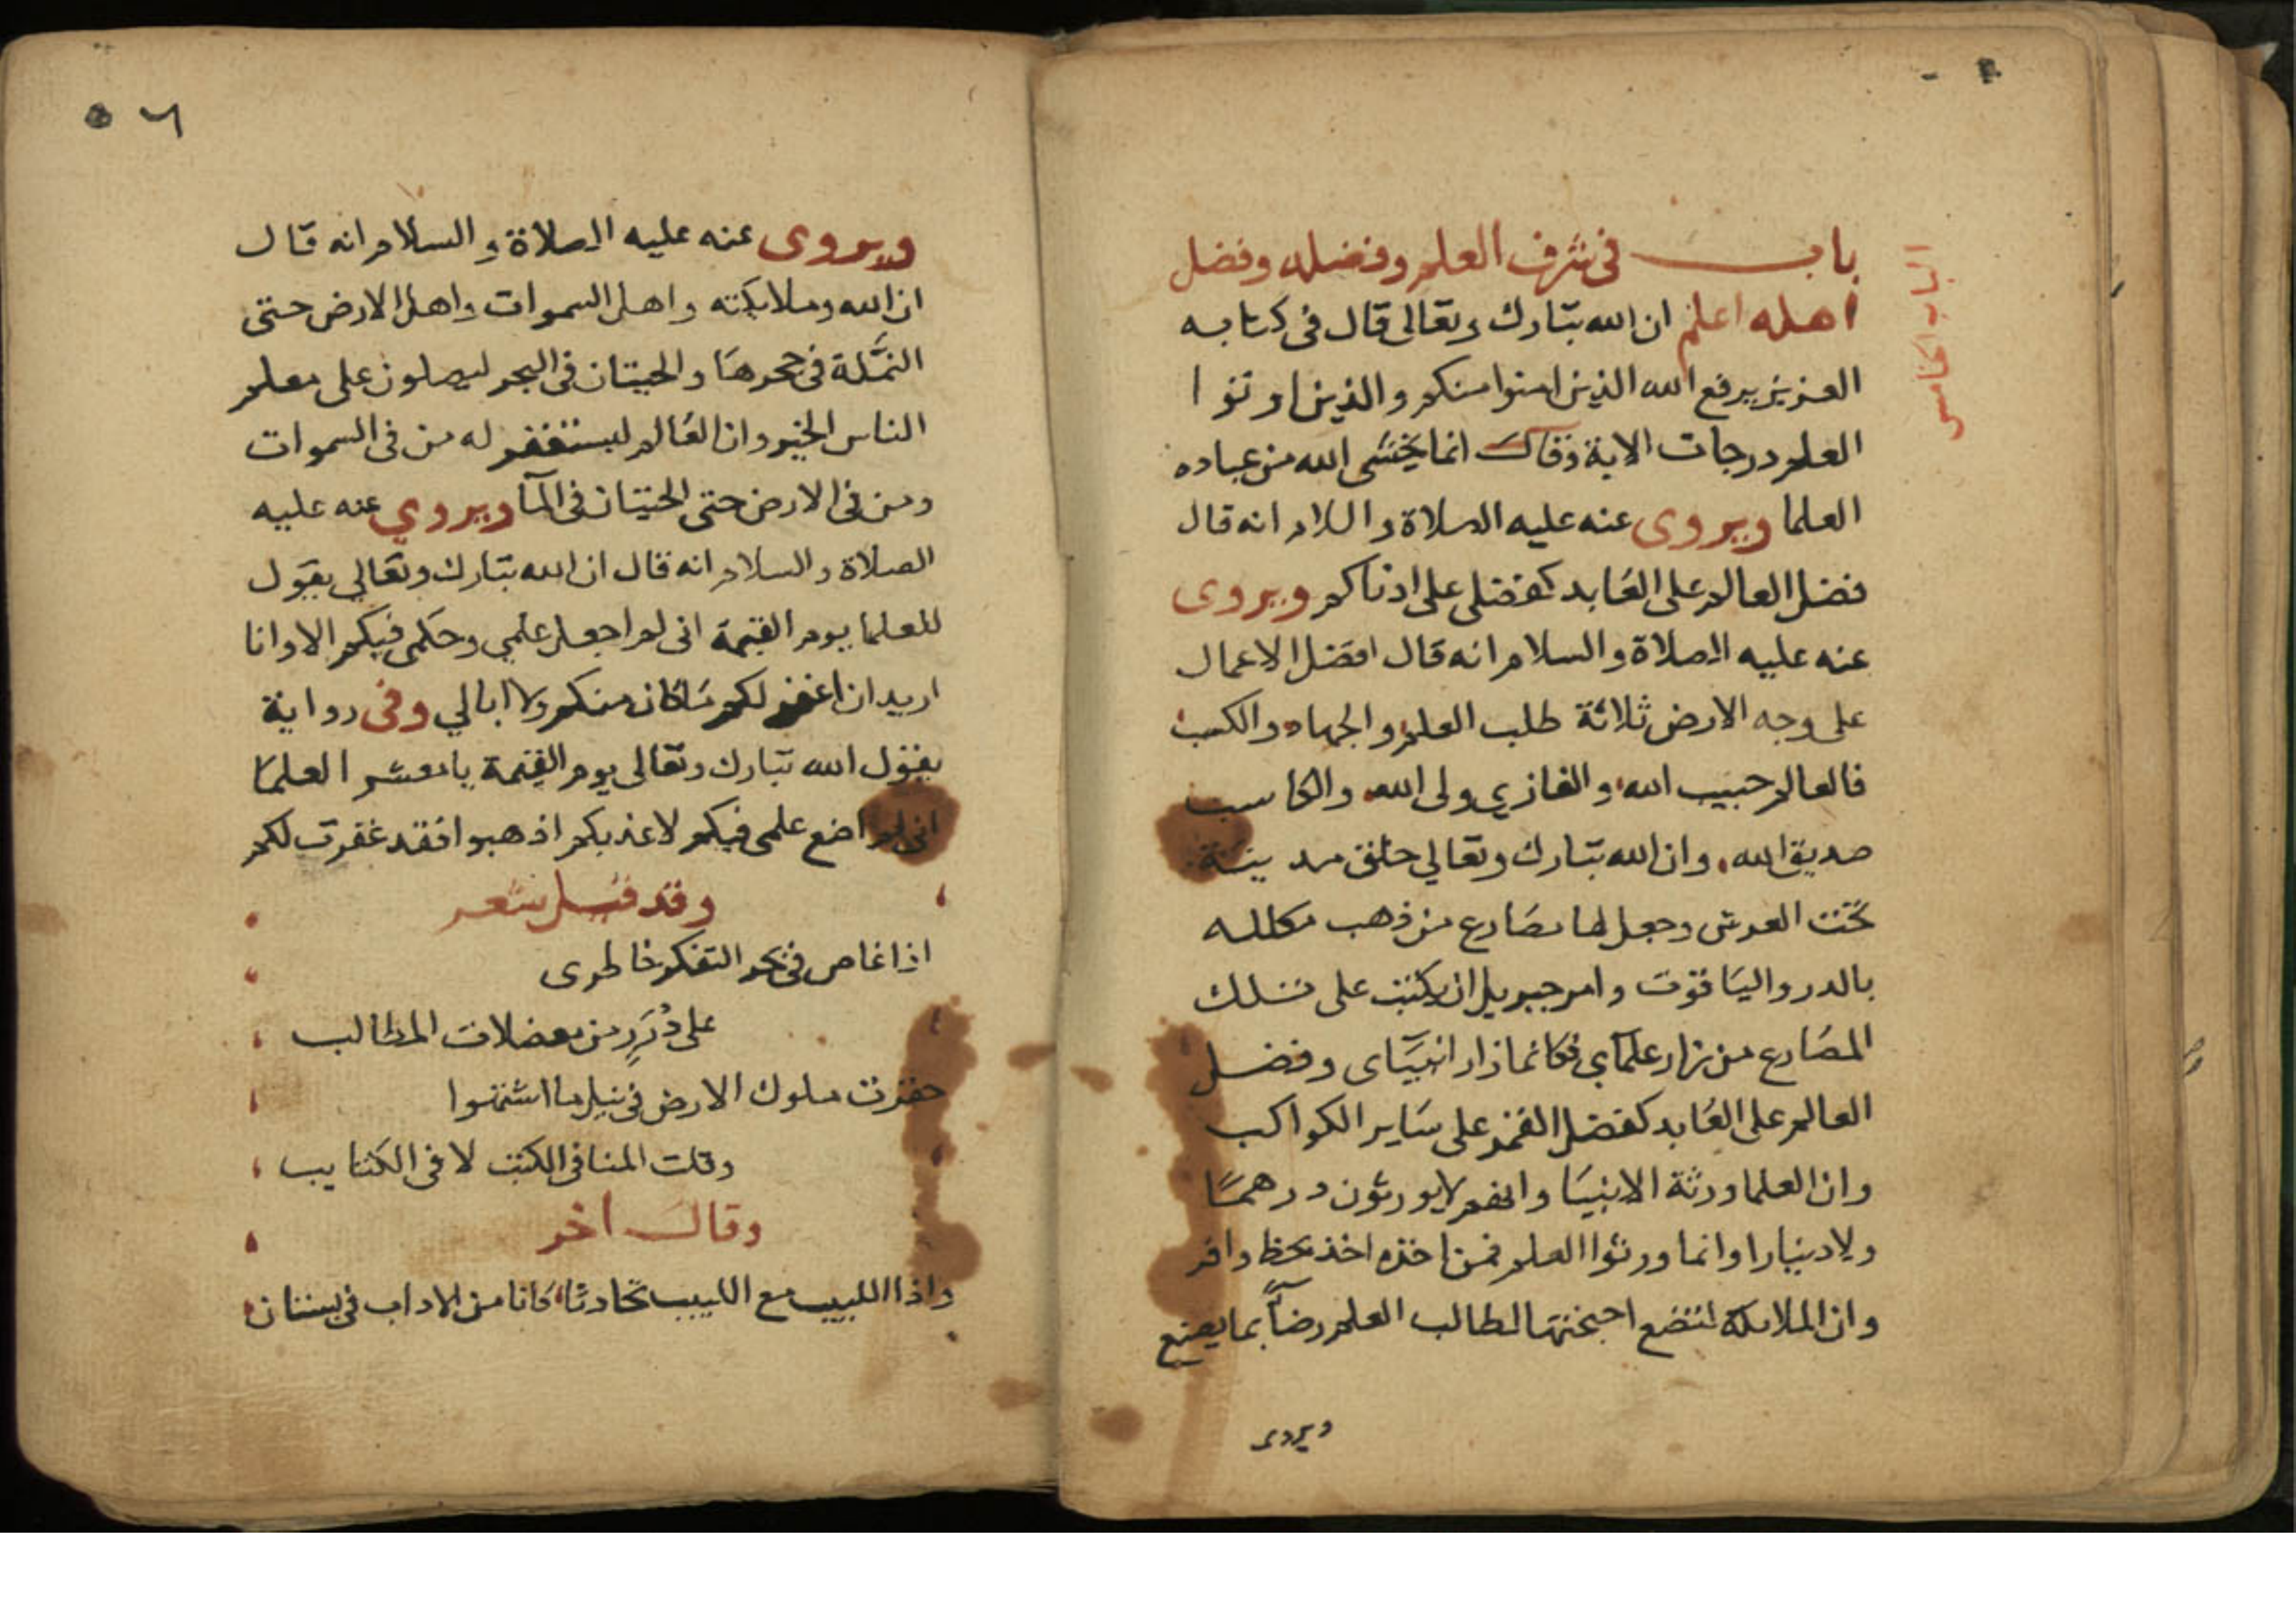 باب في شرف العلم وفضله وفضل
اهله اعلم ان الله تبارك وتعالى قال في كتابه
العزيز يرفع الله الذين امنوا منكم والذين اوتوا
العلم درجات الاية وقال انما يخشى الله من عباده
العلما ويروى عنه عليه الصلاة والسلام انه قال
فضل العالم على العَابد كفضلي على ادناكم ويروى
عنه عليه الصلاة والسلام انه قال افضل الاعمال
على وجه الارض ثلاثة طلب العلم والجهاد والكسب
فالعالم حبيب الله والغازي ولى الله والكاسب
صديق الله وان الله تبارك وتعالي خلق مدينة
تحت العرش وجعل لها مصَارع من ذهب مكلله
بالدر واليَاقوت وامر جبريل ان يكتب على تلك
المصَارع من زار علمآي فكانما زار انبيَآى وفضل
العالم على العَابد كفضل القمر على سَاير الكواكب
وان العلما ورثة الانبيَا وانهم لا يورثون درهمًا
ولا دينارا وانما ورثوا العلم فمن اخذه اخذ بحظ وافر
وان الملايكة لتضع اجنحتها لطالب العلم رضاًء بما يصنع
ويروى
الباب الخامس
٥٦
ويروى عنه عليه الصلاة والسلام انه قال
ان الله وملايكته واهل السموات واهل الارض حتى
النَّملة في جحرهَا والحيتان في البحر ليصلون على معلم
الناس الخير وان العَالم ليستغفر له من في السموات
ومن في الارض حتى الحيتان في المآ ويروي عنه عليه
الصلاة والسلام انه قال ان الله تبارك وتعَالي يقول
للعلما يوم القيمة انى لم اجعل علمي وحكمي فيكم الا وانا
اريد ان اغفر لكم مَا كان منكم ولا ابالي وفى رواية
يقول الله تبارك وتعَالى يوم القيمة يا معشر العلمَا
اني لم اضع علمى فيكم لاعذبكم اذهبوا فقد غفرت لكم
وقد قيل شعر
اذا غاص في بحر التفكر خاطرى
على دُرَرٍ من معضلات المطالب
حقرت ملوك الارض في نيل ما اشتهوا
وقلت المنا في الكتب لا في الكتايب
وقال اخر
واذا اللبيب مع اللبيب تحادثا كانا من الاداب في بستان